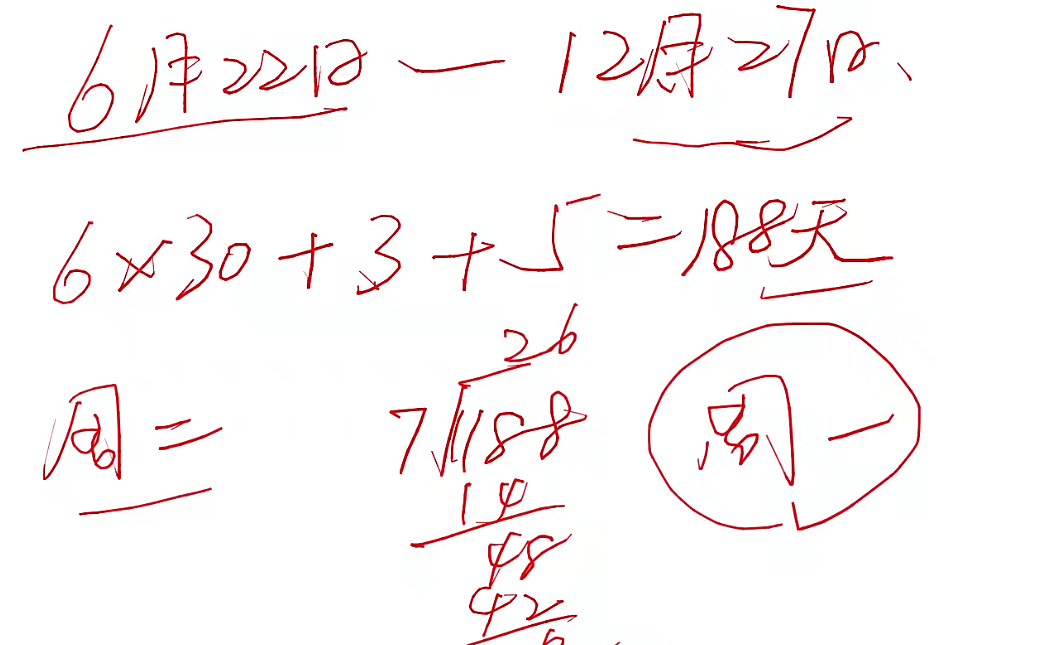 6月22日 — 12月27日、
6×30+3+5=188天
周二
26
7 188
周一
14
48
42